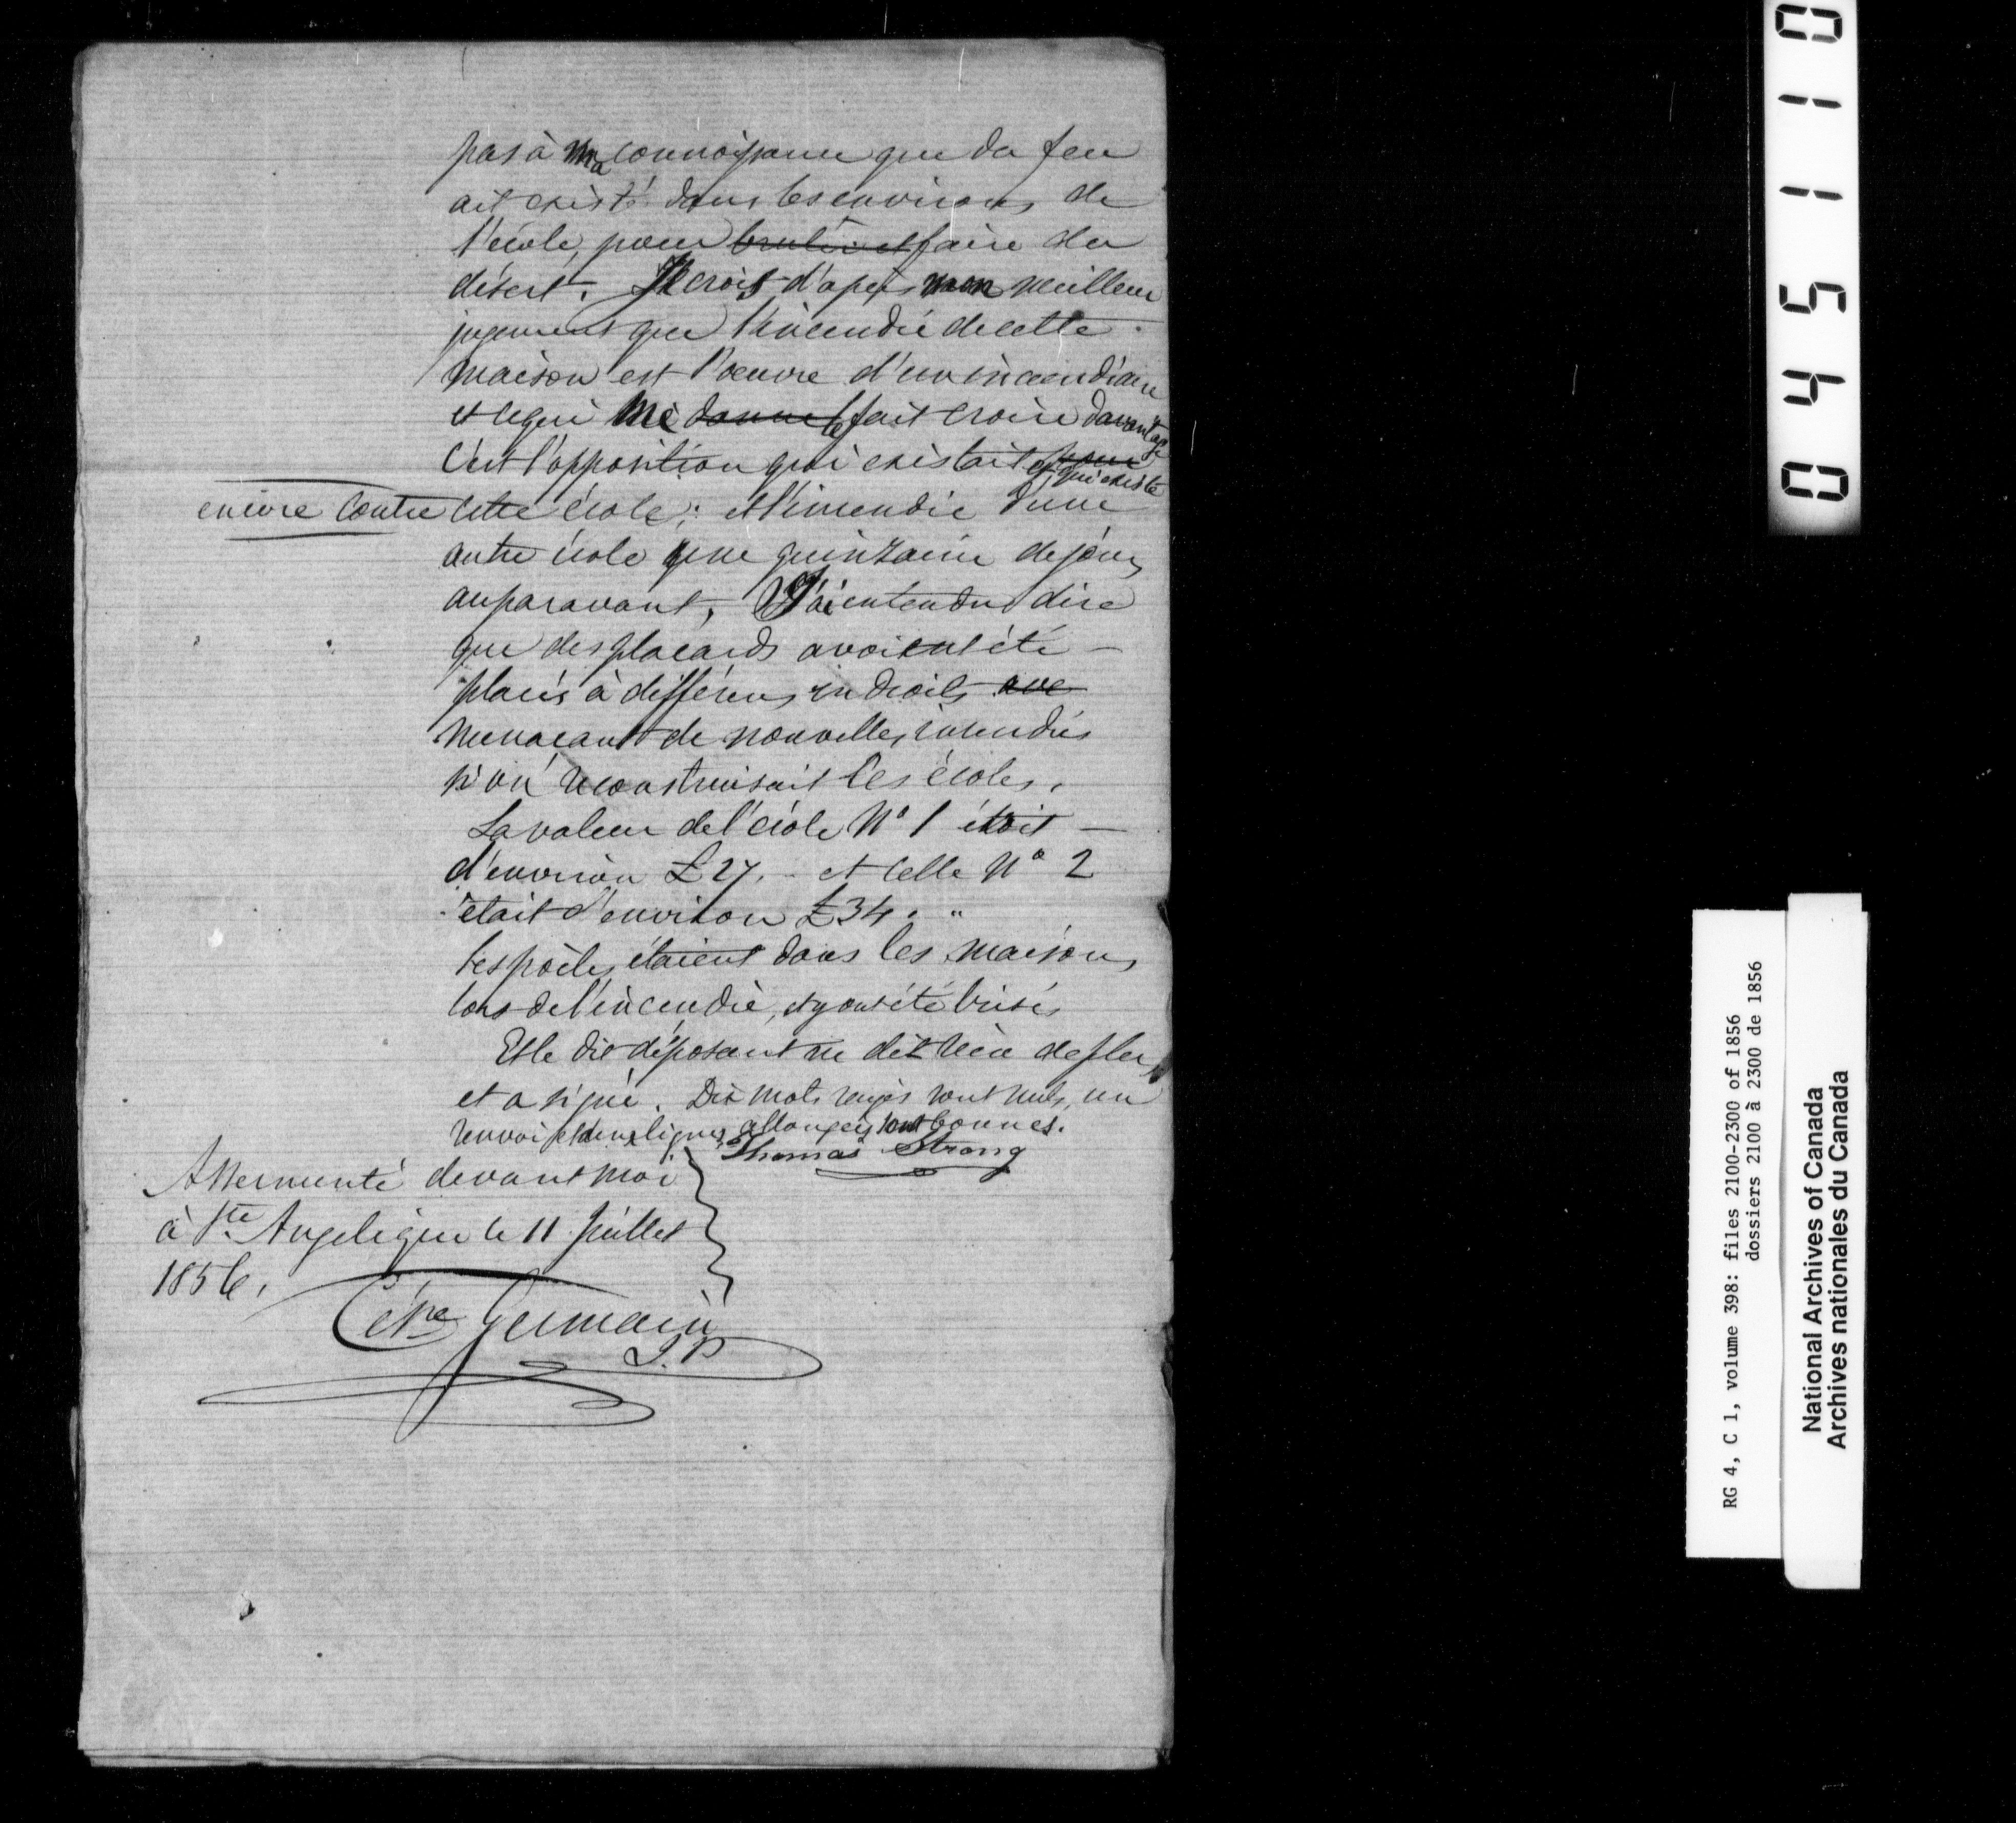 pas à ma connoissance que du feu
ait existé dans les environs de
l'école, pour bruler et faire du
désert. Je crois d'après mon meilleur
jugement que l'incendie de cette
maison est l'oeuvre d'un incendiaire
et ce qui me donne le fait croire davantage
C'est l'opposition qui existait et qui existe
encore contre cette école; et l'incendie d'une
autre école une quinzaine de jours
auparavant, J'ai entendu dire
que des placards avoient été –
placés à différens endroits ave
menacant de nouvelles incendies
si on reconstruisait les écoles.
La valeur de l'école No 1 étoit –
d'environ £27. – et celle No 2
était d'environ £34. "
Les poêles étaient dans les maisons
lors de l'incendie, et y ont été brisés
Et le dit déposant ne dit rien de plus
et a signé. Dix mots rayés sont nuls, un
renvoi et deux lignes allongées sont bonnes.
Thomas Strong
Assermenté devant moi
à Ste Angelique le 11 Juillet
1856.
Germain
J.P
0 4 5 1 1 0
RG 4, C 1, volume 398: files 2100-2300 of 1856
dossiers 2100 à 2300 de 1856
National Archives of Canada
Archives nationales du Canada